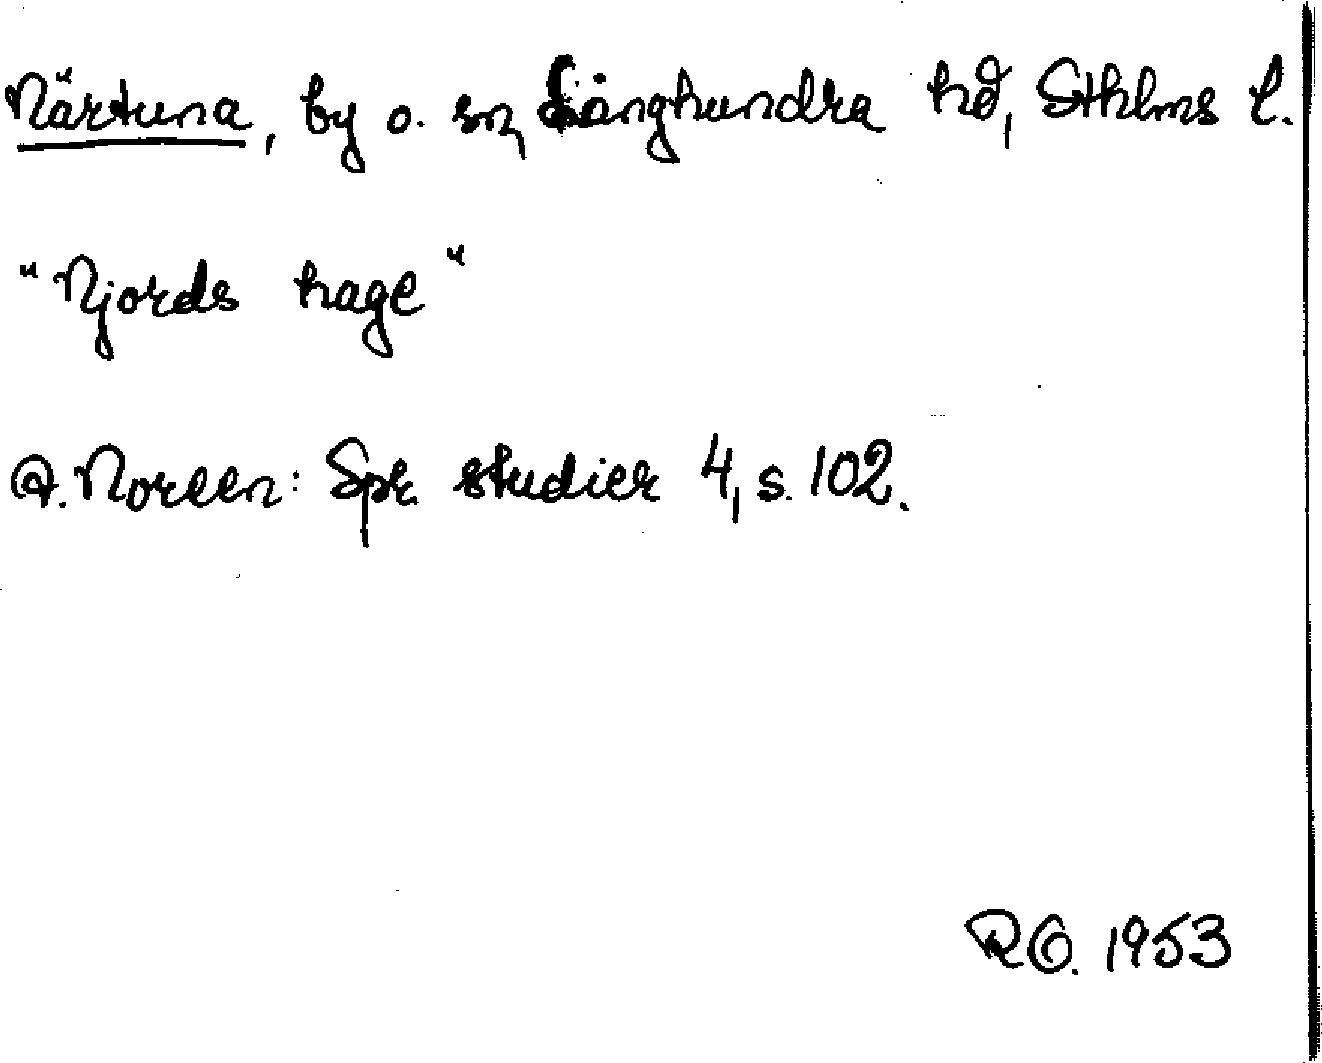 Närtuna, by o. sn, Långhundra hd, Sthlms l.
"Njords hage"
A. Noreen: Spr. studier 4, s. 102.
RO. 1953